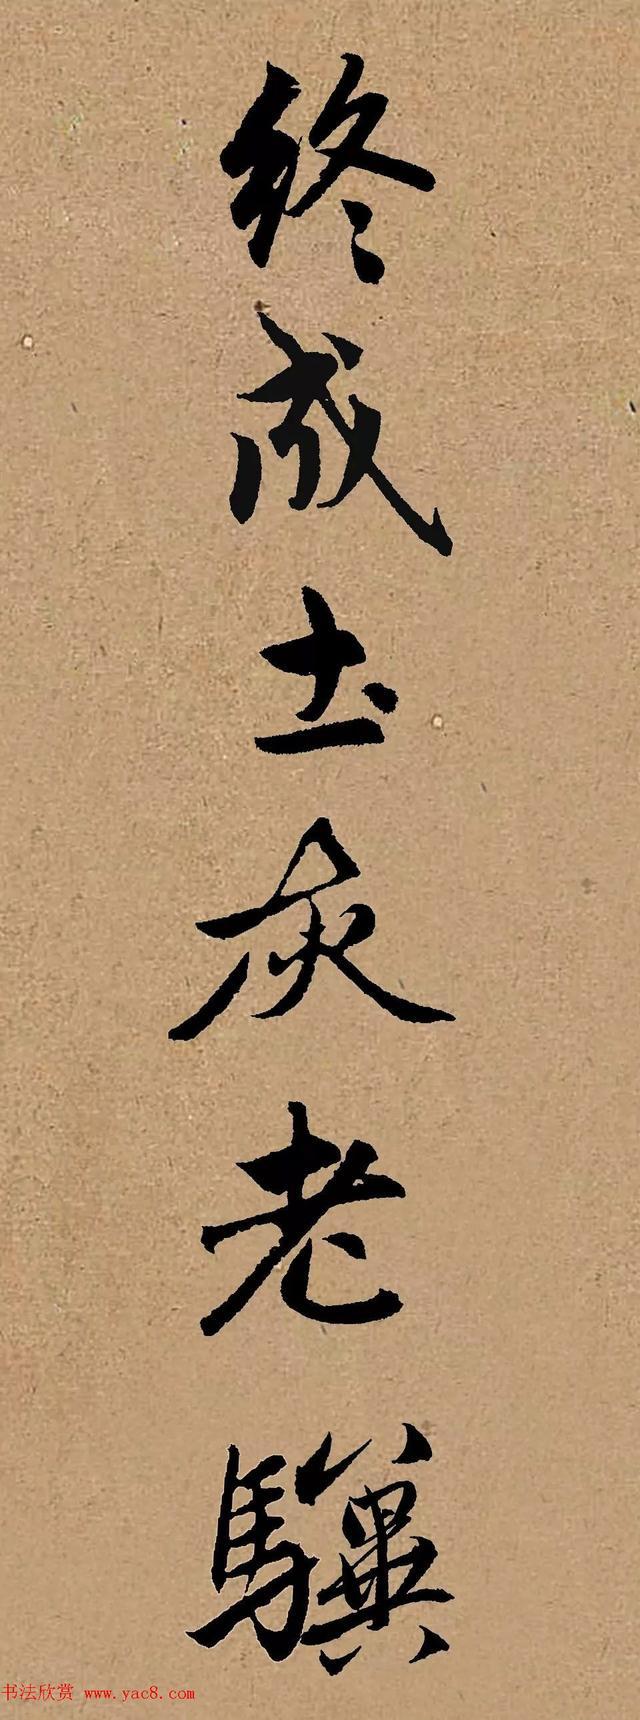 終成土灰老驥
书法欣赏 www.yac8.com